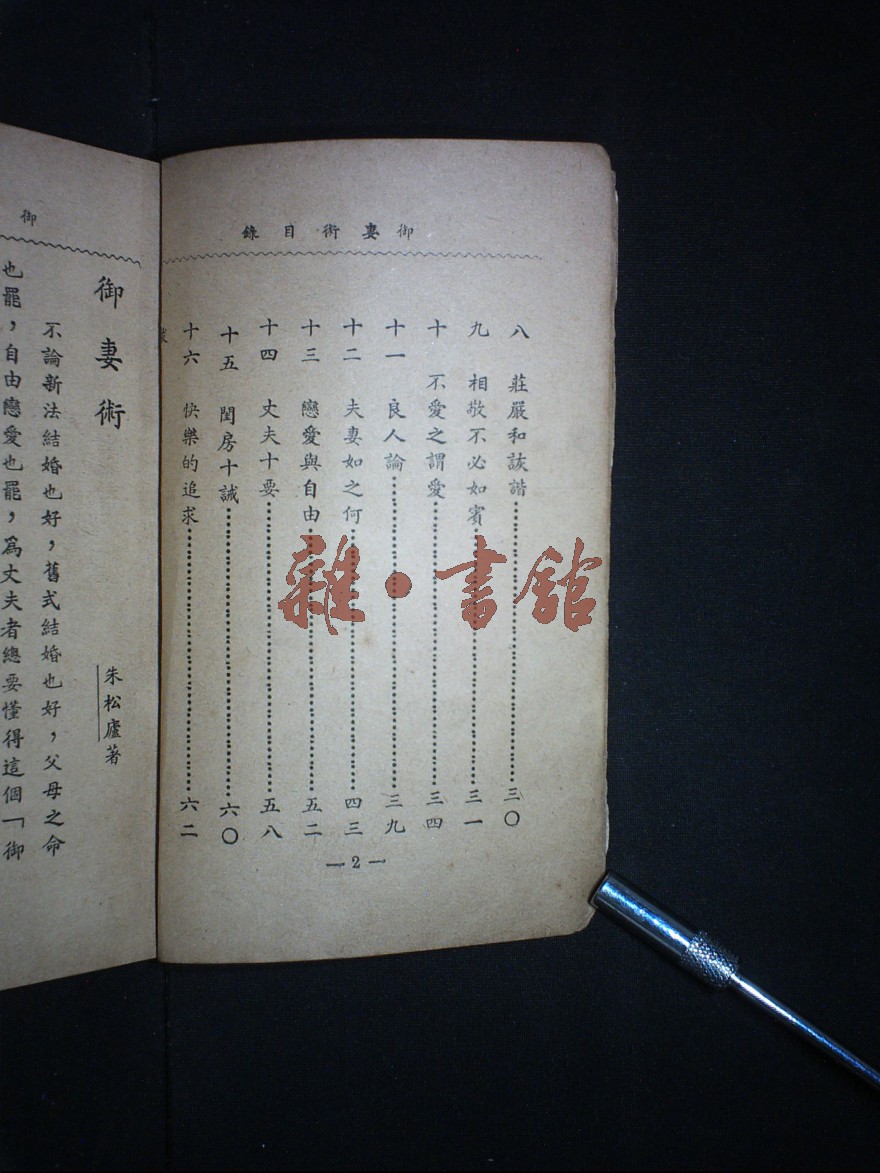 御妻術目錄
八　莊嚴和詼諧…………三〇
九　相敬不必如賓…………三一
十　不愛之謂愛…………三四
十一　良人論…………三九
十二　夫妻如之何…………四三
十三　戀愛與自由…………五二
十四　丈夫十要…………五八
十五　閨房十誡…………六〇
十六　快樂的追求…………六二
—2—
御
御妻術
朱松廬著
不論新法結婚也好，舊式結婚也好，父母之命
也罷，自由戀愛也罷，爲丈夫者總要懂得這個「御
雜·書館